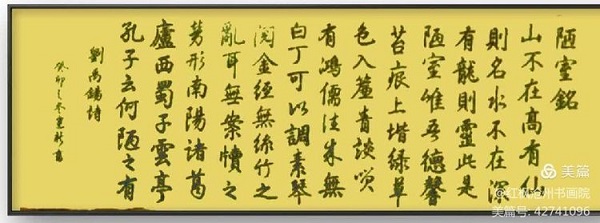 陋室銘
山不在高有仙
則名水不在深
有龍則靈此是
陋室惟吾德馨
苔痕上堦綠草
色入簾青談笑
有鴻儒往來無
白丁可以調素琴
閱金經無絲竹之
亂耳無案牘之
勞形南陽諸葛
廬西蜀子雲亭
孔子云何陋之有
劉禹錫詩
癸卯之冬
美篇
书画院
美篇号: 42741096